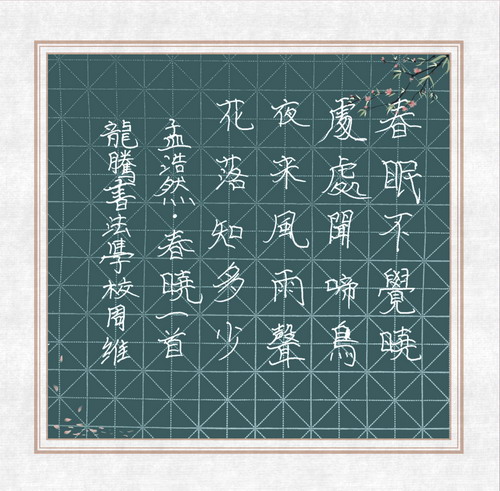 春眠不覺曉
處處聞啼鳥
夜来風雨聲
花落知多少
孟浩然·春曉一首
龍騰書法學校周維